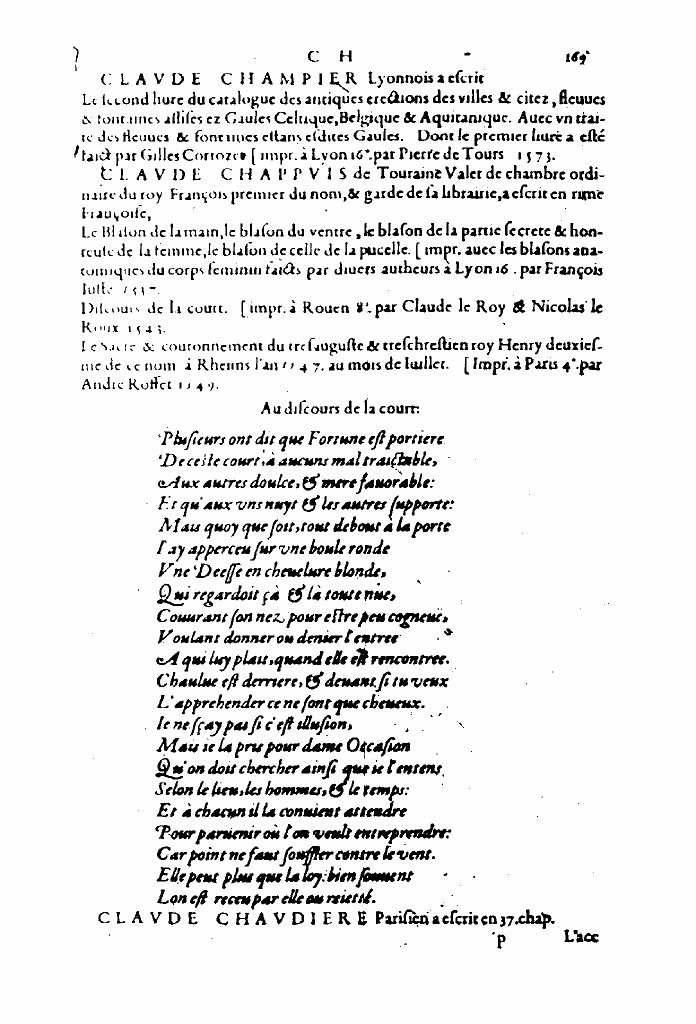 C H 169
CLAVDE CHAMPIER Lyonnois a escrit
Le second liure du catalogue des antiques erections des villes & citez, fleuues
& fontaines assises ez Gaules Celtique, Belgique & Aquitanique. Auec vn trai-
té des fleuues & fontaines estans esdites Gaules. Dont le premier liure a esté
faict par Gilles Corrozet [impr. à Lyon 16°. par Pierre de Tours 1573.
CLAVDE CHAPPVIS de Touraine Valet de chambre ordi-
naire du roy François premier du nom, & garde de sa librairie, a escrit en rime
Françoise,
Le Blason de la main, le blason du ventre, le blason de la partie secrete & hon-
teuse de la femme, le blason de celle de la pucelle. [impr. auec les blasons ana-
tomiques du corps feminin faicts par diuers autheurs à Lyon 16. par François
Iuste 1537.
Discours de la court. [impr. à Rouen 8°. par Claude le Roy & Nicolas le
Roux 1543.
Le Sacre & couronnement du tresauguste & treschrestien roy Henry deuxies-
me de ce nom à Rheims l'an 1547. au mois de Iuillet. [Impr. à Paris 4°. par
André Roffet 1549.
Au discours de la court:
Plusieurs ont dit que Fortune est portiere
De ceste court, à aucuns mal traictable,
Aux autres doulce, & mere fauorable:
Et qu'aux vns nuyt & les autres supporte:
Mais quoy que soit, tout debout à la porte
I'ay apperceu sur vne boule ronde
Vne Deesse en cheuelure blonde,
Qui regardoit çà & là toute nue,
Couurant son nez pour estre peu cogneuë,
Voulant donner ou denier l'entree
A qui luy plait, quand elle est rencontree.
Chaulue est derriere, & deuant si tu veux
L'apprehender ce ne sont que cheueux.
Ie ne sçay pas si c'est illusion,
Mais ie la pris pour dame Occasion
Qu'on doit chercher ainsi que ie l'entens
Selon le lieu, les hommes, & le temps:
Et à chacun il la conuient attendre
Pour paruenir où l'on veult entreprendre:
Car point ne faut souffler contre le vent.
Elle peut plus que la loy: bien souuent
Lon est receu par elle ou reietté.
CLAVDE CHAVDIERE Parisien a escrit en 37. chap.
p L'acc